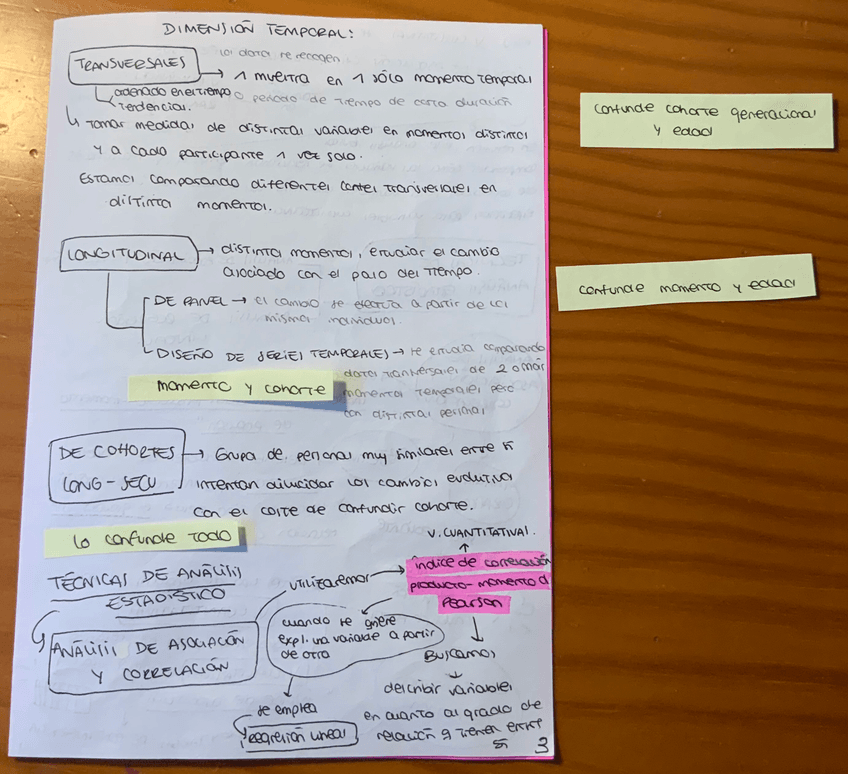 DIMENSIÓN TEMPORAL:
los datos se recogen
TRANSVERSALES → 1 muestra en 1 sólo momento temporal
ordenado en el tiempo o periodo de tiempo de corta duración
tendencias.
↳ Tomar medidas de distintas variables en momentos distintos
y a cada participante 1 vez solo.
Estamos comparando diferentes cortes transversales en
distintos momentos.
confunde cohorte generacional
y edad
LONGITUDINAL → distintos momentos, estudiar el cambio
asociado con el paso del tiempo.
confunde momento y edad
DE PANEL → el cambio se efectúa a partir de los
mismos individuos.
DISEÑO DE SERIES TEMPORALES → se estudia comparando
datos transversales de 2 o más
momentos temporales pero
con distintas personas
momento y cohorte
DE COHORTES → Grupo de personas muy similares entre sí
LONG-SECU intentan dilucidar los cambios evolutivos
con el coste de confundir cohorte.
lo confunde todo
V. CUANTITATIVAS.
TÉCNICAS DE ANÁLISIS
ESTADÍSTICO
utilizaremos → índice de correlación
producto-momento d
Pearson
ANÁLISIS DE ASOCIACIÓN
Y CORRELACIÓN
cuando se quiere
expli. una variable a partir
de otra
Buscamos
describir variables
en cuanto al grado de
relación q tienen entre
sí
se emplea
regresión lineal
3